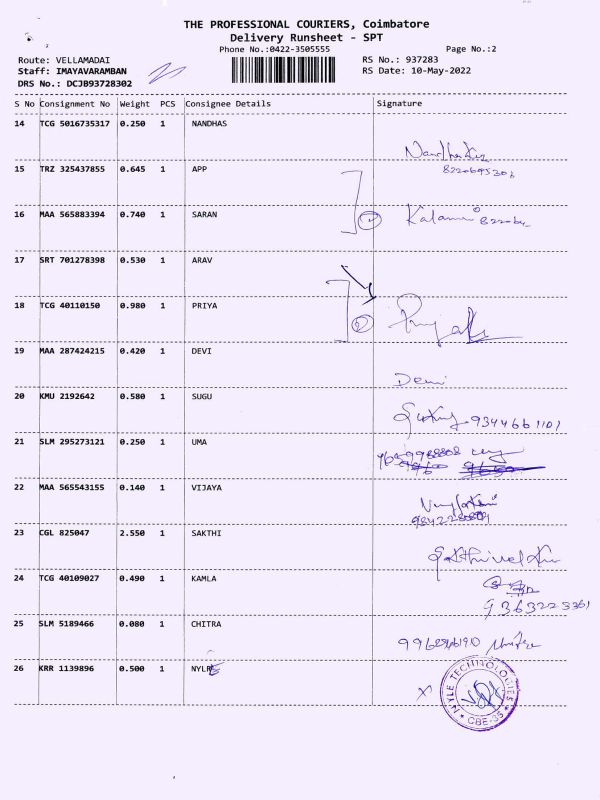 THE PROFESSIONAL COURIERS, Coimbatore
Delivery Runsheet - SPT
Phone No.:0422-3505555
Page No.:2
Route: VELLAMADAI
RS No.: 937283
Staff: IMAYAVARAMBAN
RS Date: 10-May-2022
DRS No.: DCJB93728302
S No Consignment No Weight PCS Consignee Details Signature
14 TCG 5016735317 0.250 1 NANDHAS
15 TRZ 325437855 0.645 1 APP
16 MAA 565883394 0.740 1 SARAN
17 SRT 701278398 0.530 1 ARAV
18 TCG 40110150 0.980 1 PRIYA
19 MAA 287424215 0.420 1 DEVI
20 KMU 2192642 0.580 1 SUGU
9344661101
21 SLM 295273121 0.250 1 UMA
22 MAA 565543155 0.140 1 VIJAYA
23 CGL 825047 2.550 1 SAKTHI
24 TCG 40109027 0.490 1 KAMLA
9363223361
25 SLM 5189466 0.080 1 CHITRA
26 KRR 1139896 0.500 1 NYLE
NYLE TECHNOLOGIES
CBE-35